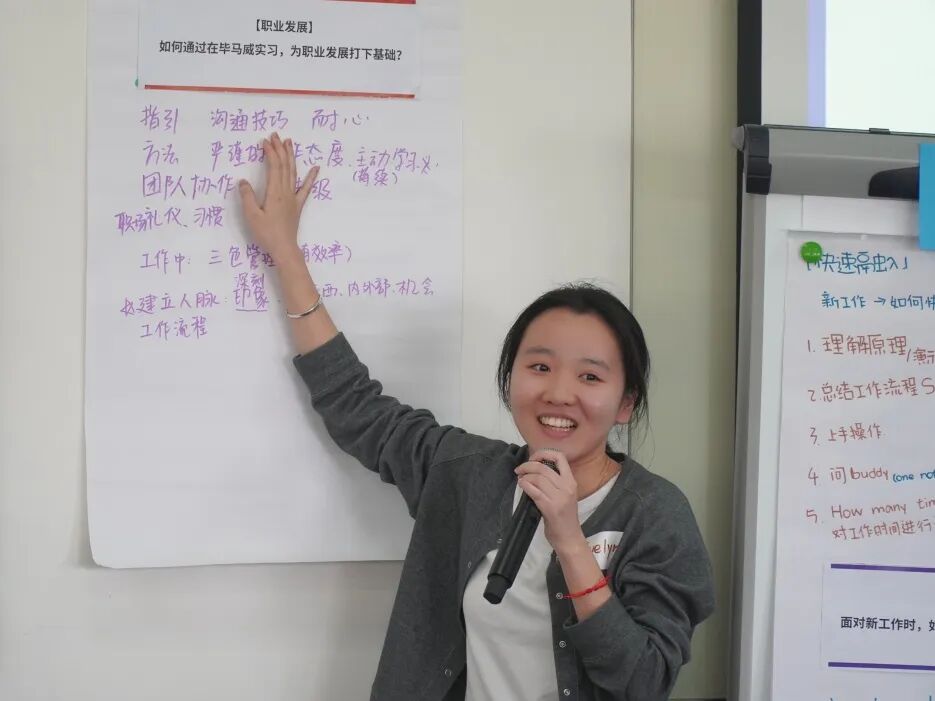 【职业发展】
如何通过在毕马威实习，为职业发展打下基础？
指引 沟通技巧 耐心
方法 严谨的 态度、主动学习
(有效)
团队协作 级
职场礼仪、习惯
工作中：三色管 有效率)
深刻
建立人脉：印象 西、内外部、机会
工作流程
velyn
「快速
新工作→如何
1. 理解原理/演示
2. 总结工作流程 S
3. 上手操作
4 问buddy (one no
5. How many tim
对工作时间进行
面对新工作时，如